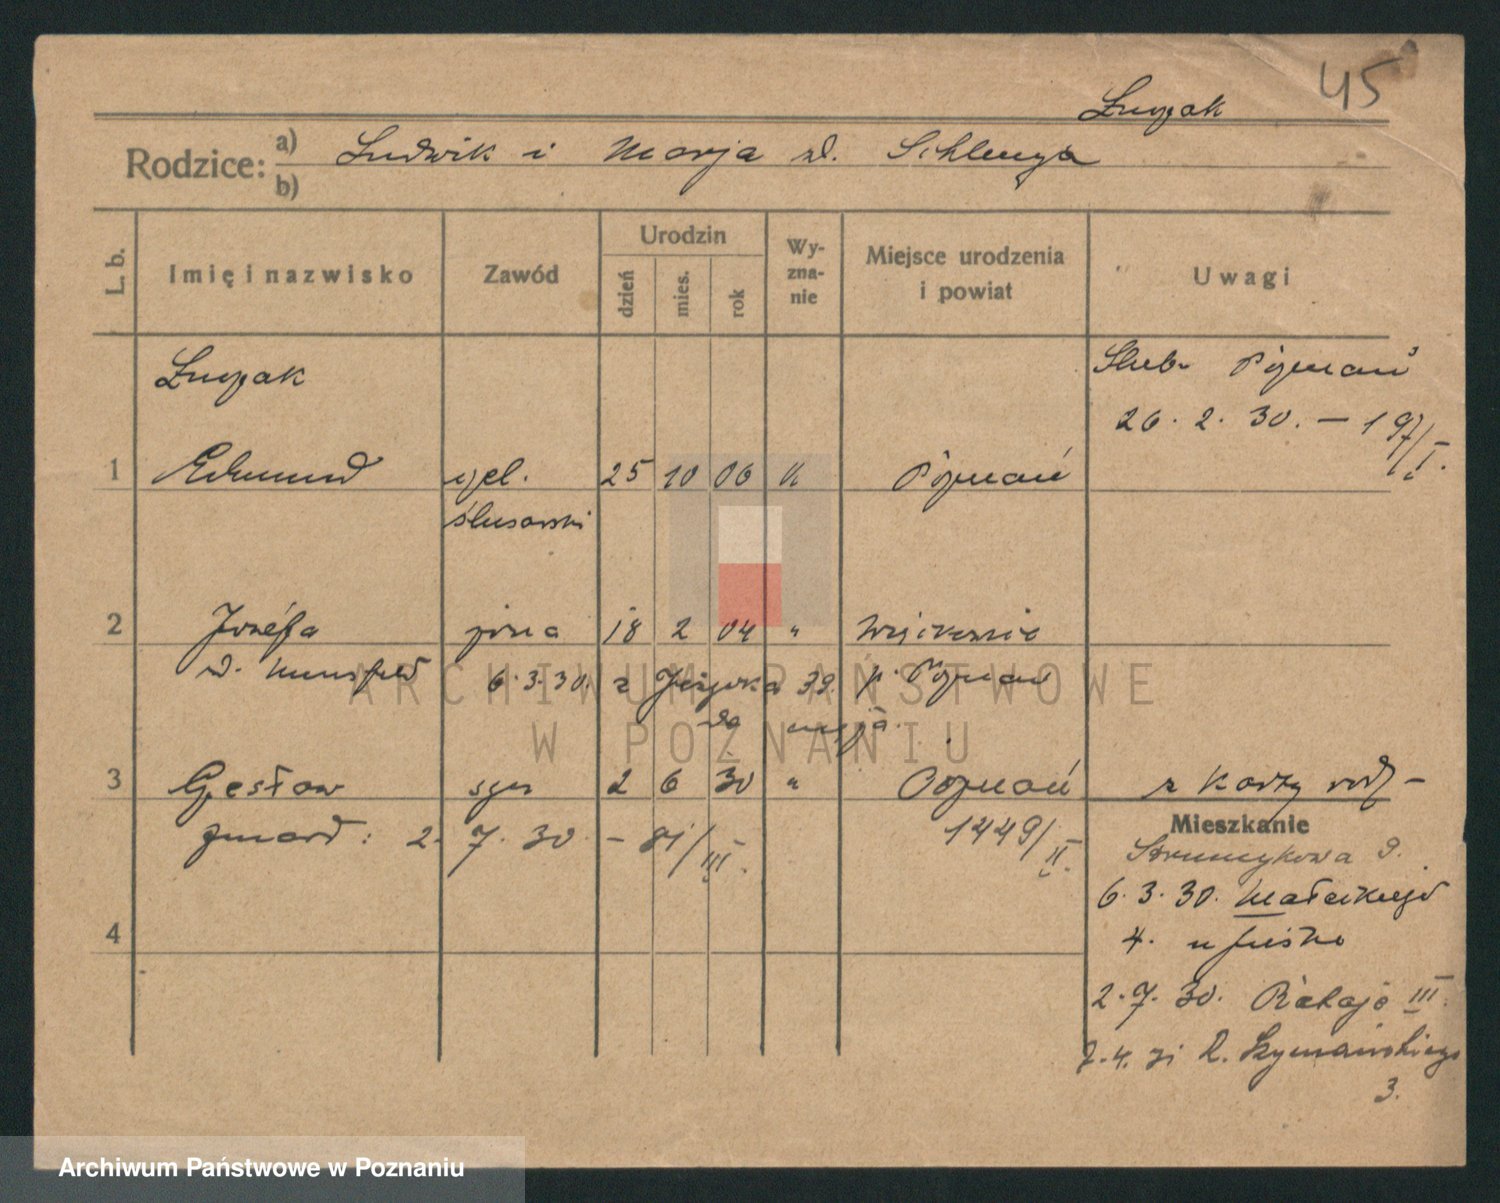 45
Łuczak
Rodzice: a) Ludwik i Marja zd. Schlenga
b)
L. b. Imię i nazwisko Zawód Urodzin dzień mies. rok Wyznanie Miejsce urodzenia i powiat Uwagi
Łuczak Ślub Poznań
26. 2. 30. – 197/I.
1 Edmund czel. 25 10 06 k Poznań
ślusarski
2 Józefa żona 18 2 04 "
d. 6.3.30. z 39. p. Poznań
do męża
3 Czesław syn 2 6 30 " Poznań z karty rodz –
zmarł: 2. 7. 30 – 81/III. 1449/II.
Mieszkanie
Strumykowa 9.
6. 3. 30. Małeckiego
4
4.
2. 7. 30. Rataje III.
7.4.31 R. Szymańskiego
3.
ARCHIWUM PAŃSTWOWE
W POZNANIU
Archiwum Państwowe w Poznaniu